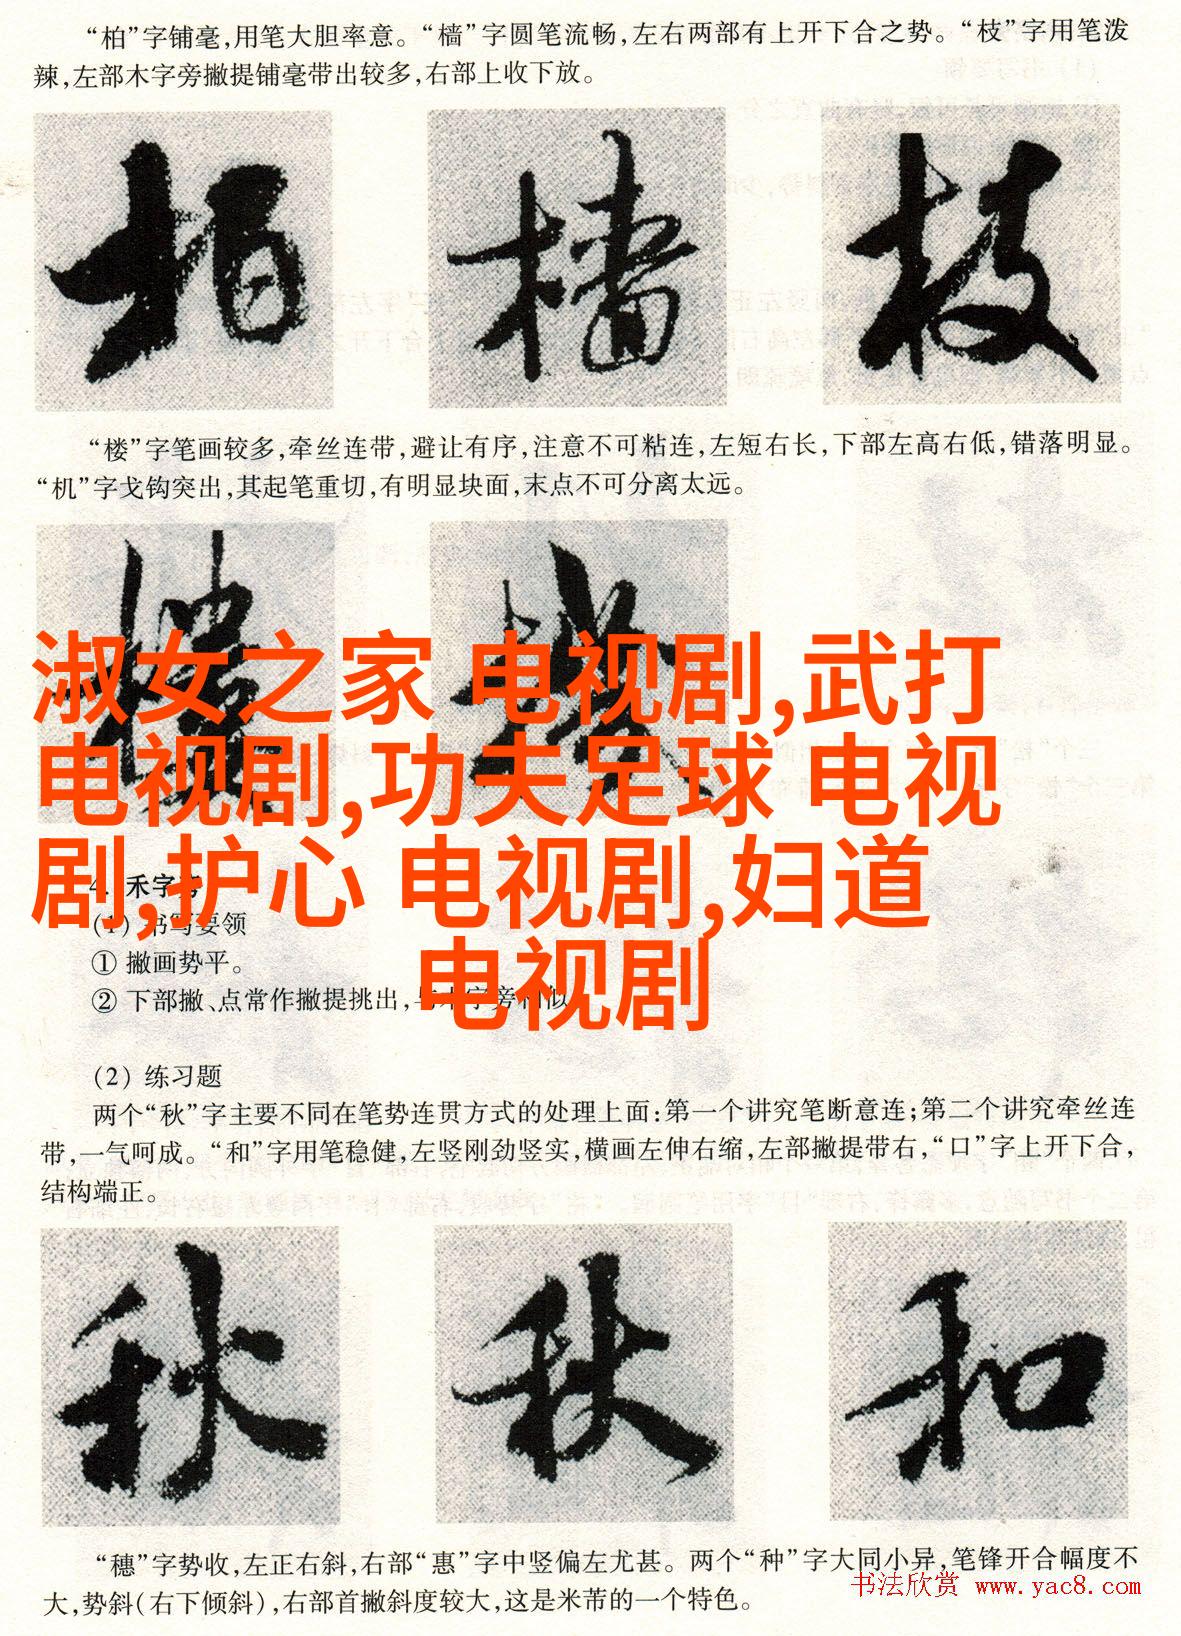 “柏”字铺毫,用笔大胆率意。“樯”字圆笔流畅,左右两部有上开下合之势。“枝”字用笔泼
辣,左部木字旁撇提铺毫带出较多,右部上收下放。
柏 樯 枝
“楼”字笔画较多,牵丝连带,避让有序,注意不可粘连,左短右长,下部左高右低,错落明显。
“机”字戈钩突出,其起笔重切,有明显块面,末点不可分离太远。
楼 機
淑女之家 电视剧,武打
电视剧,功夫足球 电视
剧,护心 电视剧,妇道
电视剧
4. 禾字旁
(1) 书写要领
① 撇画势平。
② 下部撇、点常作撇提挑出,与木字旁相似
(2) 练习题
两个“秋”字主要不同在笔势连贯方式的处理上面:第一个讲究笔断意连;第二个讲究牵丝连
带,一气呵成。“和”字用笔稳健,左竖刚劲竖实,横画左伸右缩,左部撇提带右,“口”字上开下合,
结构端正。
秋 秋 和
“穗”字势收,左正右斜,右部“惠”字中竖偏左尤甚。两个“种”字大同小异,笔锋开合幅度不
大,势斜(右下倾斜),右部首撇斜度较大,这是米芾的一个特色。
书法欣赏 www.yac8.com